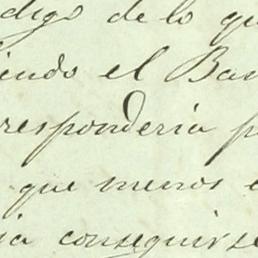 digo de lo qu
iendo el Ban
responderia p
que menos e
ia conseguirse